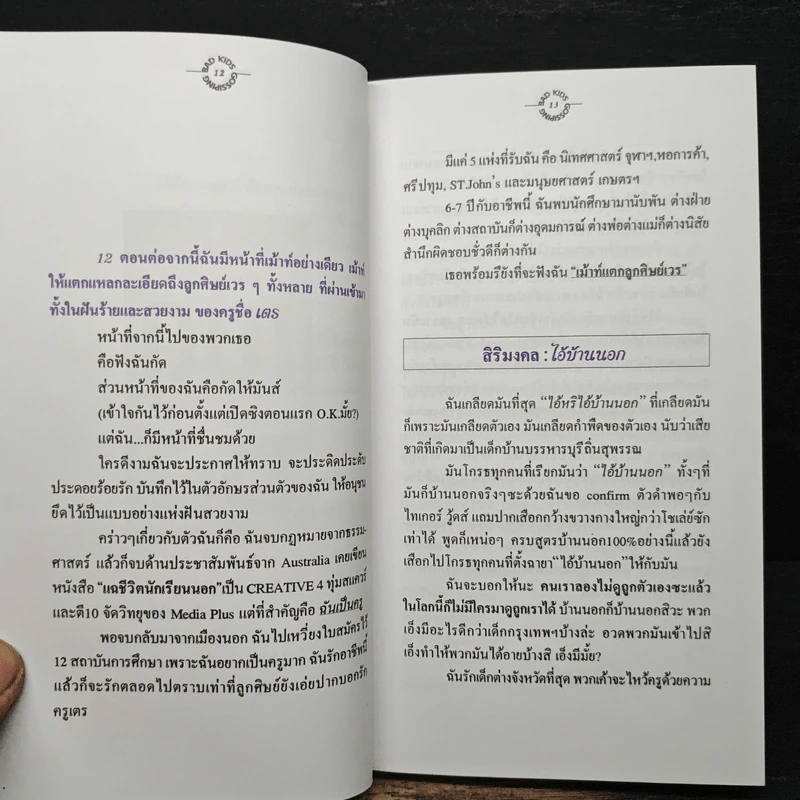 BAD KIDS
12
GOSSIPING
12 ตอนต่อจากนี้ฉันมีหน้าที่เม้าท์อย่างเดียว เม้าท์
ให้แตกแหลกละเอียดถึงลูกศิษย์เวร ๆ ทั้งหลาย ที่ผ่านเข้ามา
ทั้งในฝันร้ายและสวยงาม ของครูชื่อ เตร
หน้าที่จากนี้ไปของพวกเธอ
คือฟังฉันกัด
ส่วนหน้าที่ของฉันคือกัดให้มันส์
(เข้าใจกันไว้ก่อนตั้งแต่เปิดซิงตอนแรก O.K.มั้ย?)
แต่ฉัน...ก็มีหน้าที่ชื่นชมด้วย
ใครดีงามฉันจะประกาศให้ทราบ จะประดิดประดับ
ประดอยร้อยรัก บันทึกไว้ในตัวอักษรส่วนตัวของฉัน ให้อนุชน
ยึดไว้เป็นแบบอย่างแห่งฝันสวยงาม
คร่าวๆเกี่ยวกับตัวฉันก็คือ ฉันจบกฎหมายจากธรรม-
ศาสตร์ แล้วก็จบด้านประชาสัมพันธ์จาก Australia เคยเขียน
หนังสือ "แฉชีวิตนักเรียนนอก" เป็น CREATIVE 4 ทุ่มสแควร์
และดีเจ 10 จัดวิทยุของ Media Plus แต่ที่สำคัญคือ ฉันเป็นครู
พอจบกลับมาจากเมืองนอก ฉันไปเหวี่ยงใบสมัครไว้
12 สถาบันการศึกษา เพราะฉันอยากเป็นครูมาก ฉันรักอาชีพนี้
แล้วก็จะรักตลอดไปตราบเท่าที่ลูกศิษย์ยังเอ่ยปากบอกรัก
ครูเตร
BAD KIDS
13
GOSSIPING
มีแค่ 5 แห่งที่รับฉัน คือ นิเทศศาสตร์ จุฬาฯ,หอการค้า,
ศรีปทุม, ST.John's และมนุษยศาสตร์ เกษตรฯ
6-7 ปีกับอาชีพนี้ ฉันพบนักศึกษามานับพัน ต่างฝ่าย
ต่างบุคลิก ต่างสถาบันก็ต่างอุดมการณ์ ต่างพ่อต่างแม่ก็ต่างนิสัย
สำนึกผิดชอบชั่วดีก็ต่างกัน
เธอพร้อมรึยังที่จะฟังฉัน "เม้าท์แตกลูกศิษย์เวร"
สิริมงคล : ไอ้บ้านนอก
ฉันเกลียดมันที่สุด "ไอ้หริไอ้บ้านนอก" ที่เกลียดมัน
ก็เพราะมันเกลียดตัวเอง มันเกลียดกำพืดของตัวเอง นับว่าเสีย
ชาติที่เกิดมาเป็นเด็กบ้านบรรหารบุรีถิ่นสุพรรณ
มันโกรธทุกคนที่เรียกมันว่า "ไอ้บ้านนอก" ทั้งๆที่
มันก็บ้านนอกจริงๆซะด้วยฉันขอ confirm ตัวดำพอๆกับ
ไทเกอร์ วู้ดส์ แถมปากเสือกกว้างขวางกางใหญ่กว่าโชเล่ย์ซัก
เท่าได้ พูดก็เหน่อๆ ครบสูตรบ้านนอก100%อย่างนี้แล้วยัง
เสือกไปโกรธทุกคนที่ตั้งฉายา"ไอ้บ้านนอก"ให้กับมัน
ฉันจะบอกให้นะ คนเราลองไม่ดูถูกตัวเองซะแล้ว
ในโลกนี้ก็ไม่มีใครมาดูถูกเราได้ บ้านนอกก็บ้านนอกสิวะ พวก
เอ็งมีอะไรดีกว่าเด็กกรุงเทพฯบ้างล่ะ อวดพวกมันเข้าไปสิ
เอ็งทำให้พวกมันได้อายบ้างสิ เอ็งมีมั้ย?
ฉันรักเด็กต่างจังหวัดที่สุด พวกเค้าจะไหว้ครูด้วยความ